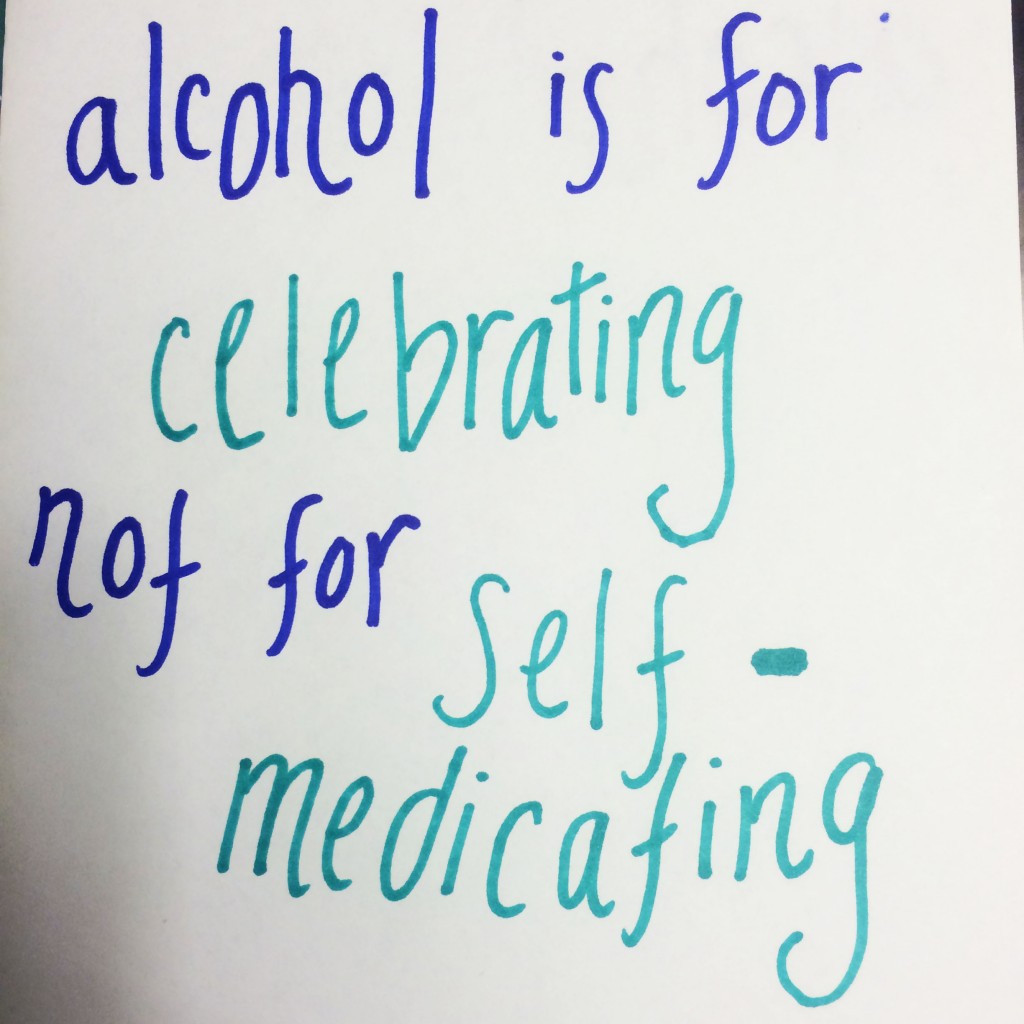 alcohol is for
celebrating
not for
self -
medicating